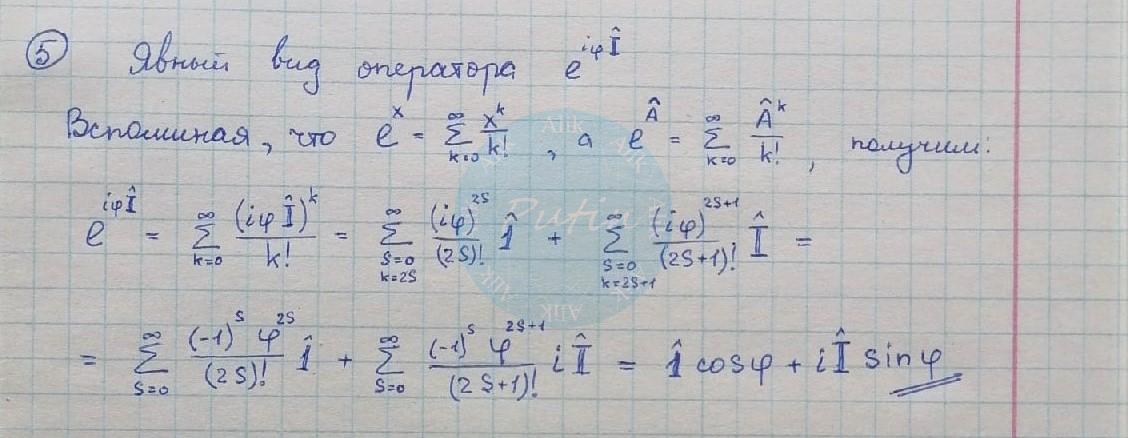 ⑤ Явный вид оператора e^{iφÎ}
Вспоминая, что e^x = ∑_{k=0}^{∞} x^k/k! , а e^Â = ∑_{k=0}^{∞} Â^k/k! , получим:
e^{iφÎ} = ∑_{k=0}^{∞} (iφÎ)^k/k! = ∑_{s=0, k=2s}^{∞} (iφ)^{2s}/(2s)! 1̂ + ∑_{s=0, k=2s+1}^{∞} (iφ)^{2s+1}/(2s+1)! Î =
= ∑_{s=0}^{∞} (-1)^s φ^{2s}/(2s)! 1̂ + ∑_{s=0}^{∞} (-1)^s φ^{2s+1}/(2s+1)! iÎ = 1̂ cosφ + iÎ sinφ
Alik
Putin
Alik